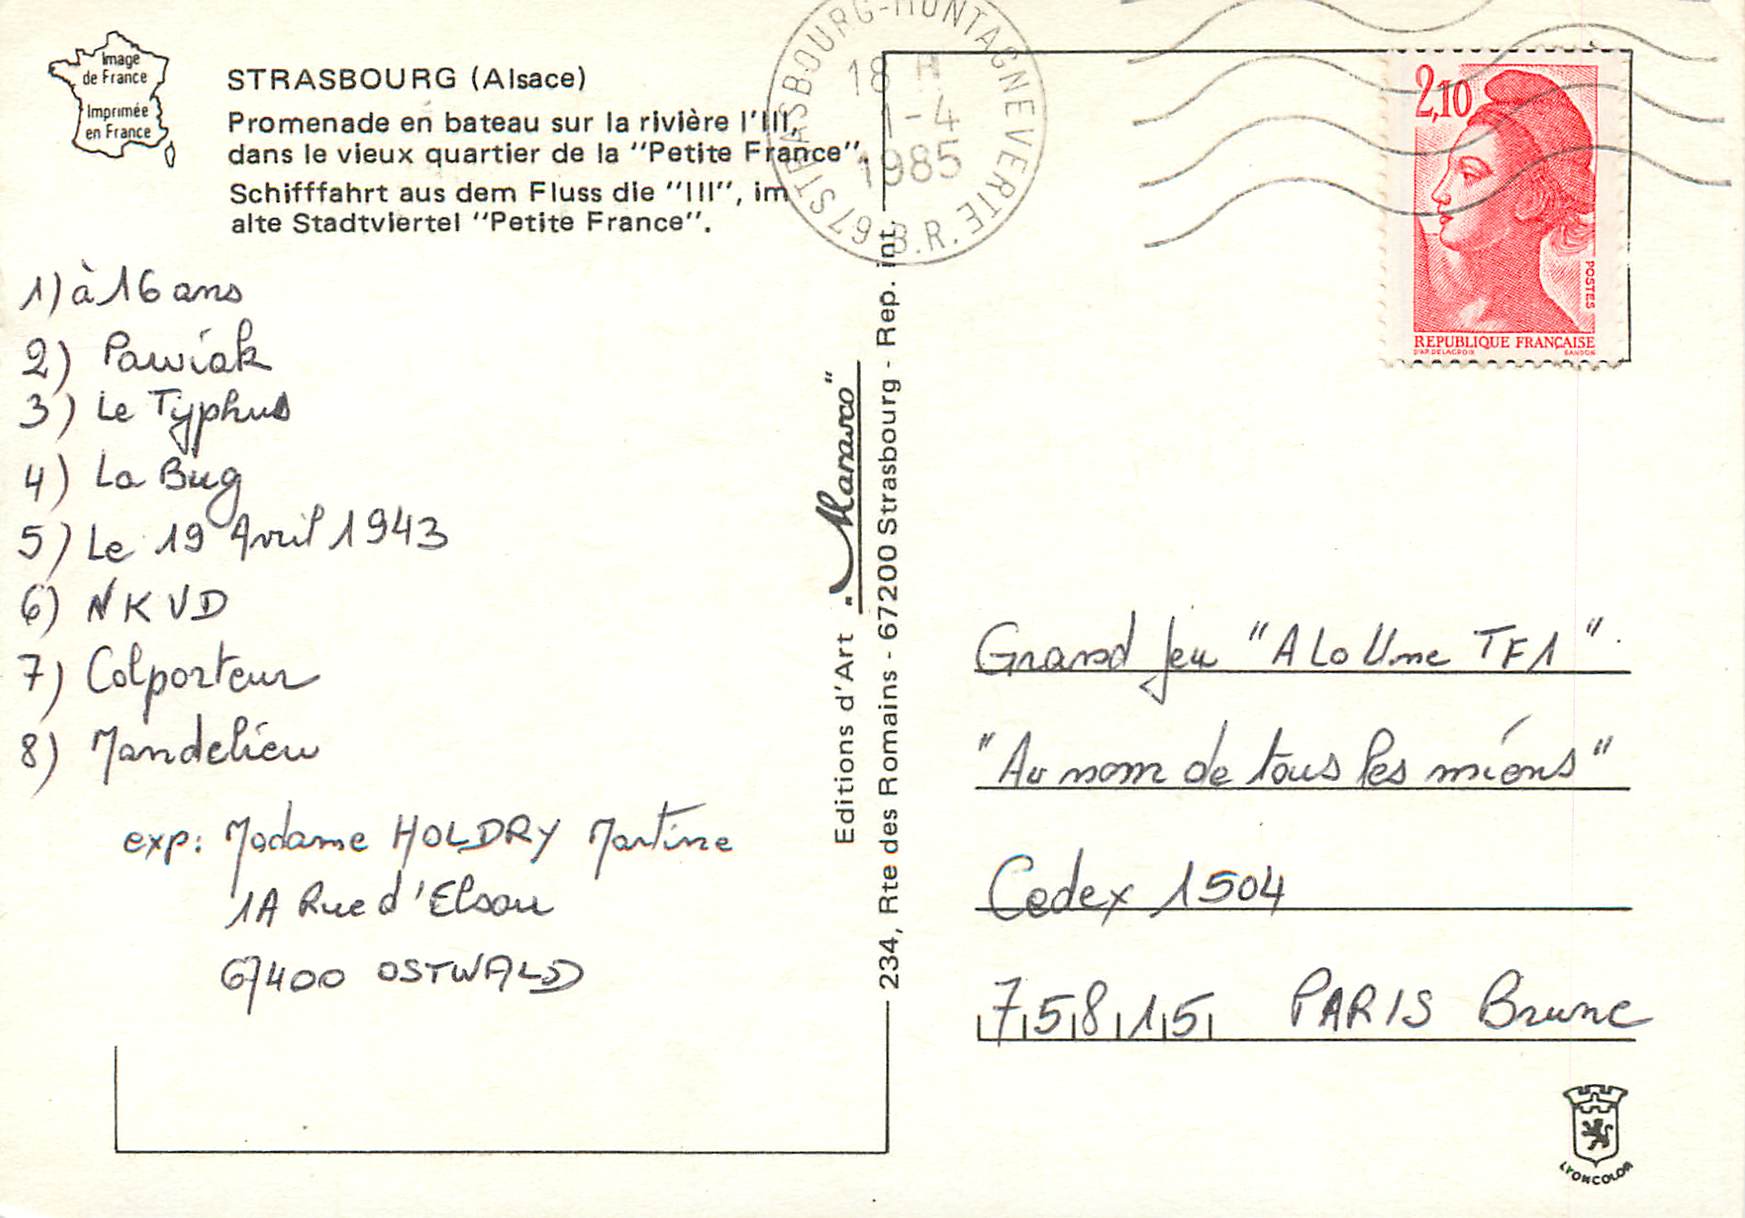 Image
de France
Imprimée
en France
STRASBOURG (Alsace)
Promenade en bateau sur la rivière l'Ill,
dans le vieux quartier de la "Petite France".
Schifffahrt aus dem Fluss die "Ill", im
alte Stadtviertel "Petite France".
67 STRASBOURG-MONTAGNE VERTE B.R.
18 H
1-4
1985
2,10
POSTES
REPUBLIQUE FRANÇAISE
D'AP. DELACROIX GANDON
1) à 16 ans
2) Pawiak
3) Le Typhus
4) La Bug
5) Le 19 Avril 1943
6) NKVD
7) Colporteur
8) Mandelieu
exp: Madame HOLDRY Martine
1A Rue d'Elsau
67400 OSTWALD
Editions d'Art "Marasco"
234, Rte des Romains - 67200 Strasbourg - Rep. int.
Grand Jeu "A La Une TF1".
"Au nom de tous les miens"
Cedex 1504
75815 PARIS Brune
LYONCOLOR